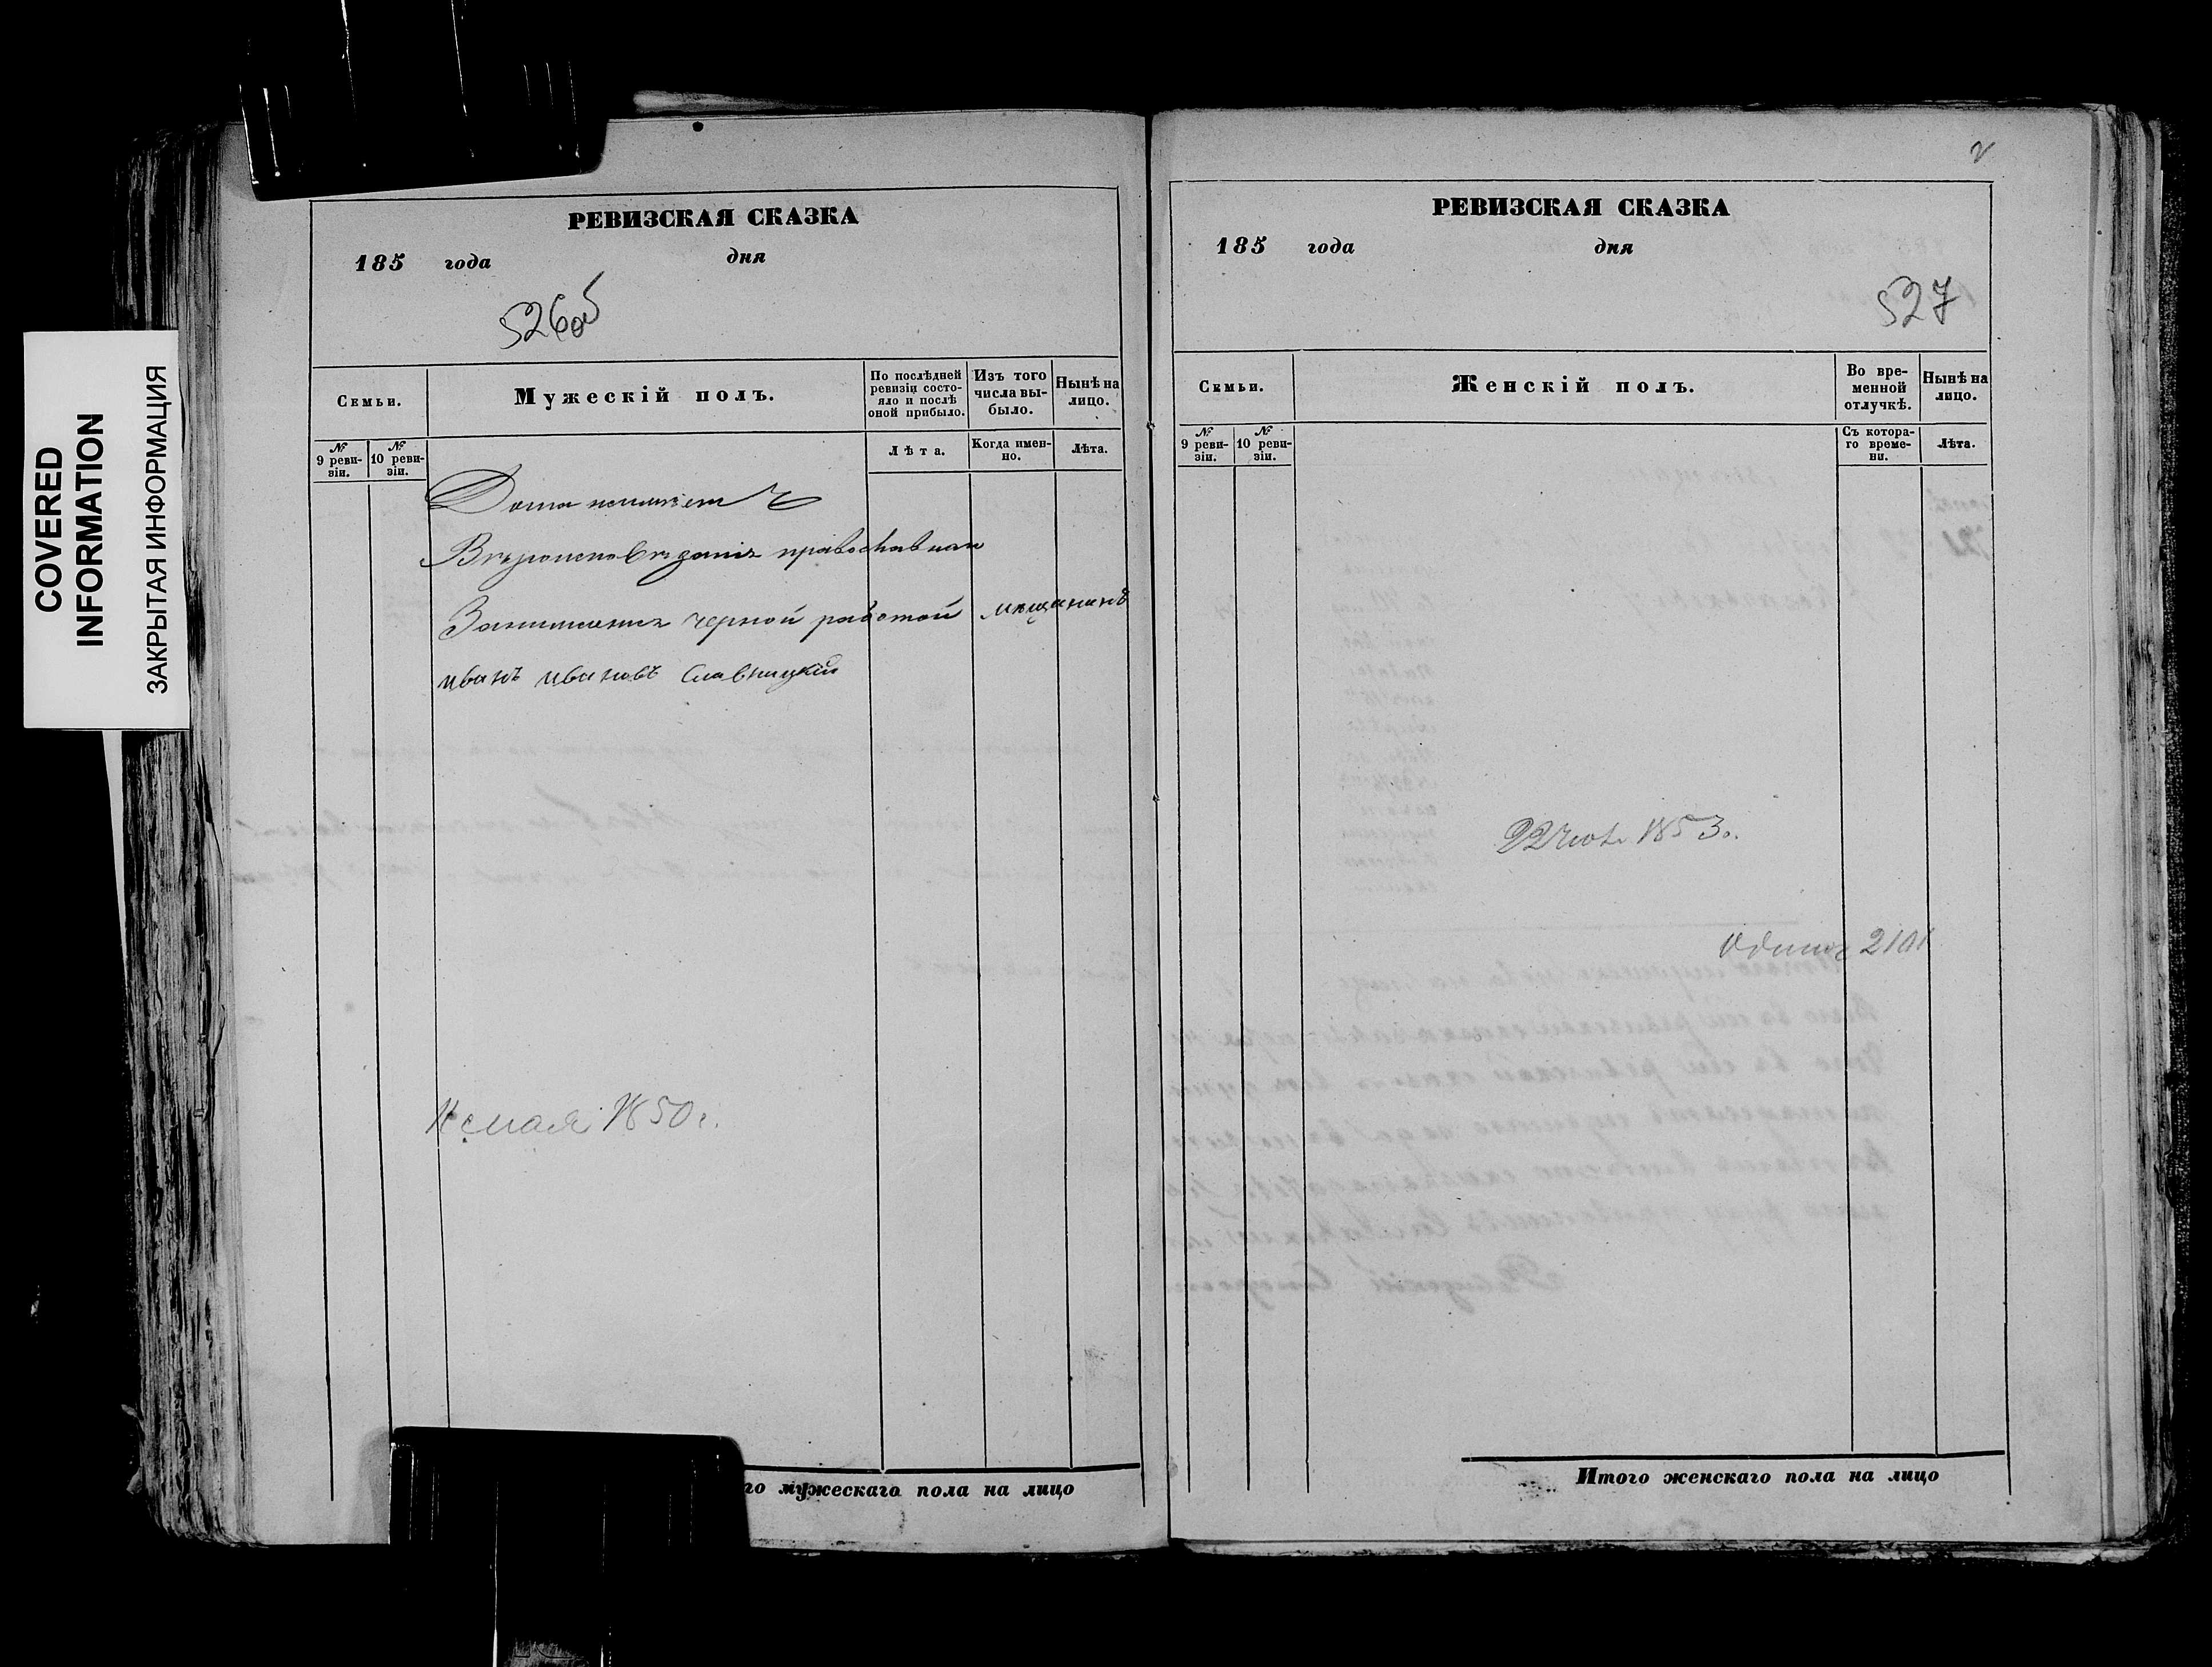 COVERED
INFORMATION
ЗАКРЫТАЯ ИНФОРМАЦИЯ
РЕВИЗСКАЯ СКАЗКА
185 года дня
526об
Семьи.
Мужескій полъ.
По послѣдней ревизіи состояло и послѣ оной прибыло.
Изъ того числа выбыло.
Нынѣ на лицо.
№ 9 ревизіи.
№ 10 ревизіи.
Лѣта.
Когда именно.
Лѣта.
Дома неимѣетъ
Вѣроисповѣданія православнаго
Занимается черной работой мещанинъ
иванъ ивановъ Славницкій
мая 1850 г.
го мужескаго пола на лицо
РЕВИЗСКАЯ СКАЗКА
185 года дня
527
Семьи.
Женскій полъ.
Во временной отлучкѣ.
Нынѣ на лицо.
№ 9 ревизіи.
№ 10 ревизіи.
Съ котораго времени.
Лѣта.
22 1853.
Итого женскаго пола на лицо